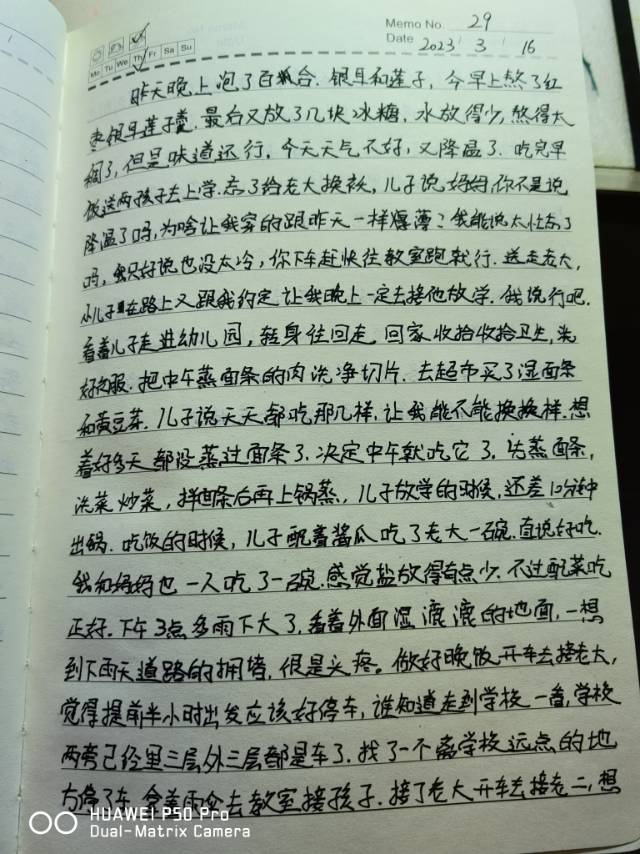 Memo No. 29
Mo Tu We Th Fr Sa Su
Date 2023 / 3 / 16
昨天晚上泡了百合.银耳和莲子,今早上熬了红
枣银耳莲子羹.最后又放了几块冰糖,水放得少,熬得太
稠了,但是味道还行,今天天气不好,又降温了.吃完早
饭送两孩子去上学.忘了给老大换衣,儿子说妈妈,你不是说
降温了吗,为啥让我穿的跟昨天一样爆薄?我能说太忙忘了
吗,我只好说也没太冷,你下车赶快往教室跑就行.送走老大,
小儿子在路上又跟我约定让我晚上一定去接他放学.我说行吧.
看着儿子走进幼儿园,转身往回走.回家收拾收拾卫生,洗
好衣服.把中午蒸面条的肉洗净切片.去超市买了湿面条
和黄豆芽.儿子说天天都吃那几样,让我能不能换换样.想
着好多天都没蒸过面条了.决定中午就吃它了.蒸面条,
洗菜炒菜,拌面条后再上锅蒸,儿子放学的时候,还差10分钟
出锅.吃饭的时候,儿子配着酱瓜吃了老大一碗.直说好吃.
我和妈妈也一人吃了一碗.感觉盐放得有点少.不过配菜吃
正好.下午3点多雨下大了,看着外面湿漉漉的地面,一想
到下雨天道路的拥堵,很是头疼。做好晚饭开车去接老大,
觉得提前半小时出发应该好停车,谁知道走到学校一看,学校
两旁已经里三层外三层都是车了.找了一个离学校远点的地
方停了车.拿着雨伞去教室接孩子.接了老大开车去接老二,想
HUAWEI P50 Pro
Dual-Matrix Camera